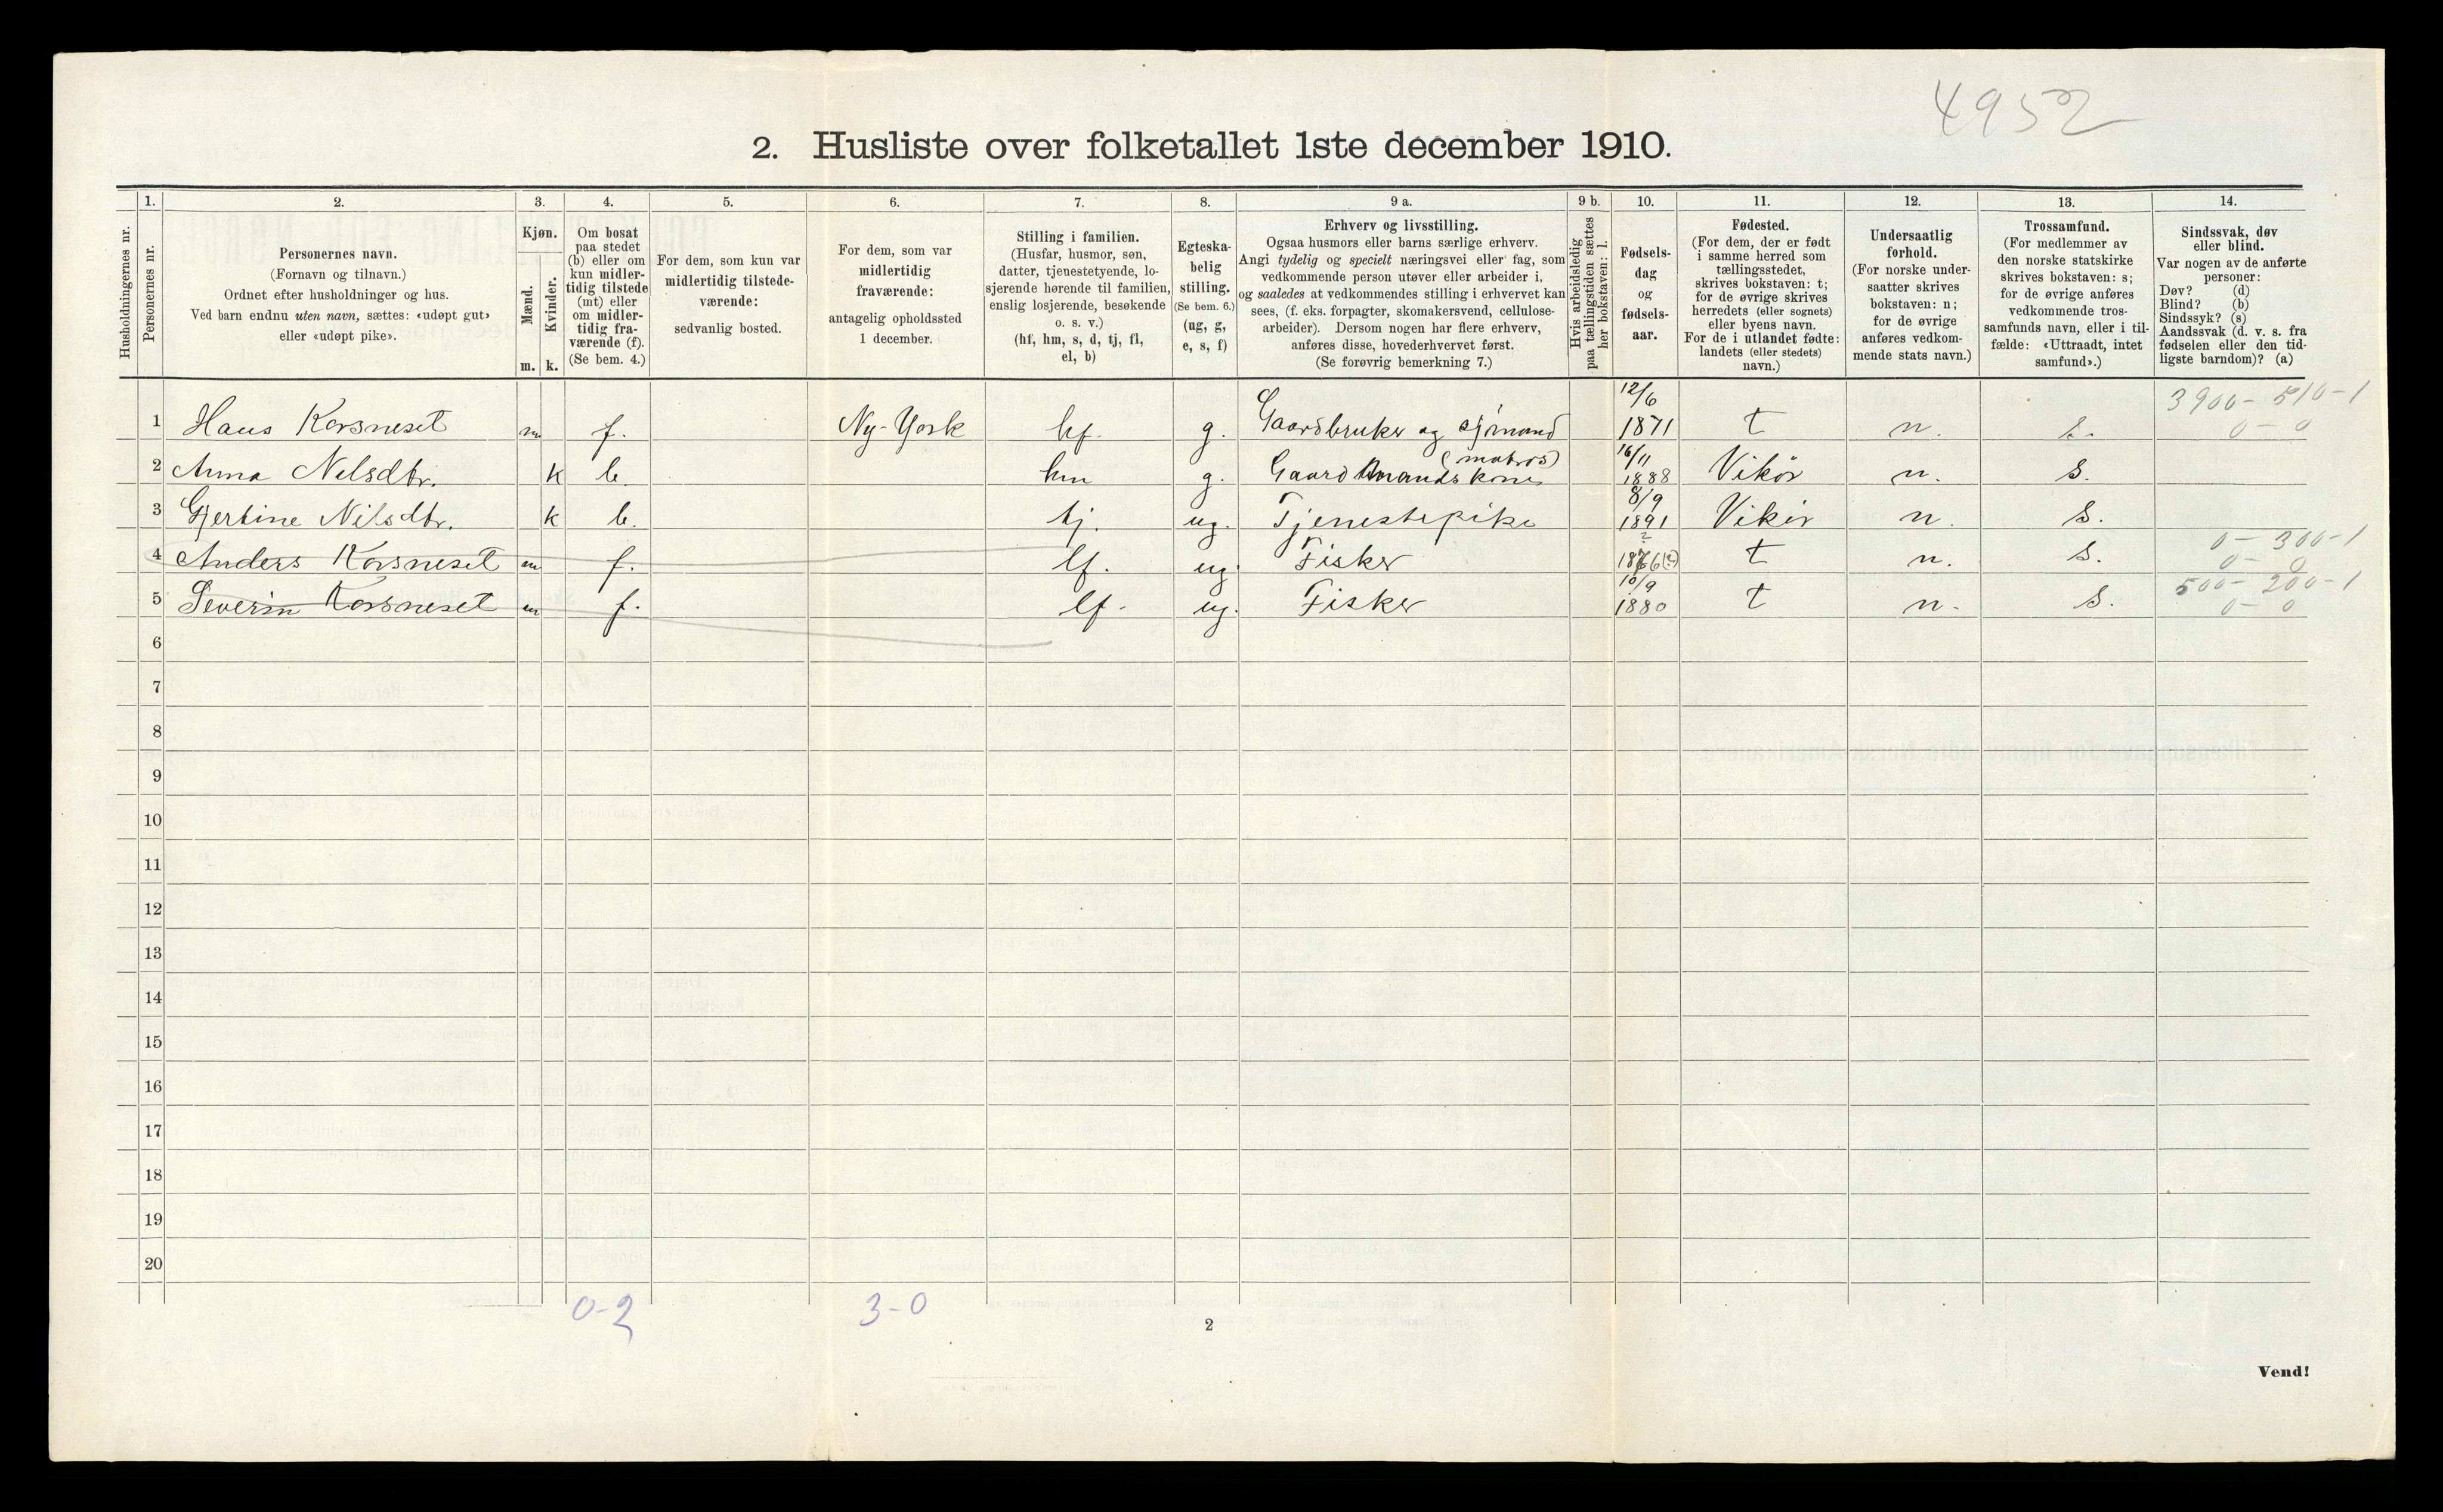 4952
2. Husliste over folketallet 1ste december 1910.
Husholdningernes nr.
1.
Personernes nr.
2.
Personernes navn.
(Fornavn og tilnavn.)
Ordnet efter husholdninger og hus.
Ved barn endnu uten navn, sættes: «udøpt gut»
eller «udøpt pike».
3.
Kjøn.
Mænd.
Kvinder.
m. k.
4.
Om bosat
paa stedet
(b) eller om
kun midler-
tidig tilstede
(mt) eller
om midler-
tidig fra-
værende (f).
(Se bem. 4.)
5.
For dem, som kun var
midlertidig tilstede-
værende:
sedvanlig bosted.
6.
For dem, som var
midlertidig
fraværende:
antagelig opholdssted
1 december.
7.
Stilling i familien.
(Husfar, husmor, søn,
datter, tjenestetyende, lo-
sjerende hørende til familien,
enslig losjerende, besøkende
o. s. v.)
(hf, hm, s, d, tj, fl,
el, b)
8.
Egteska-
belig
stilling.
(Se bem. 6.)
(ug, g,
e, s, f)
9 a.
Erhverv og livsstilling.
Ogsaa husmors eller barns særlige erhverv.
Angi tydelig og specielt næringsvei eller fag, som
vedkommende person utøver eller arbeider i,
og saaledes at vedkommendes stilling i erhvervet kan
sees, (f. eks. forpagter, skomakersvend, cellulose-
arbeider). Dersom nogen har flere erhverv,
anføres disse, hovederhvervet først.
(Se forøvrig bemerkning 7.)
9 b.
Hvis arbeidsledig
paa tællingstiden sættes
her bokstaven: l.
10.
Fødsels-
dag
og
fødsels-
aar.
11.
Fødested.
(For dem, der er født
i samme herred som
tællingsstedet,
skrives bokstaven: t;
for de øvrige skrives
herredets (eller sognets)
eller byens navn.
For de i utlandet fødte:
landets (eller stedets)
navn.)
12.
Undersaatlig
forhold.
(For norske under-
saatter skrives
bokstaven: n;
for de øvrige
anføres vedkom-
mende stats navn.)
13.
Trossamfund.
(For medlemmer av
den norske statskirke
skrives bokstaven: s;
for de øvrige anføres
vedkommende tros-
samfunds navn, eller i til-
fælde: «Uttraadt, intet
samfund».)
14.
Sindssvak, døv
eller blind.
Var nogen av de anførte
personer:
Døv? (d)
Blind? (b)
Sindssyk? (s)
Aandssvak (d. v. s. fra
fødselen eller den tid-
ligste barndom)? (a)
1 Hans Korsneset m f. Ny-York hf. g. Gaardbruker og sjömand (matros) 12/6 1871 t n. s. 3900-510-1
0-0
2 Anna Nilsdtr. k b. hm g. Gaardmands kone 16/11 1888 Vikör n. s.
3 Gjertine Nilsdtr. k b. tj. ug. Tjenestepike 8/9 1891 Vikör n. s.
4 Anders Korsneset m f. lf. ug. Fisker ? t n. s. 0-300-1
0-0
5 Severin Korsneset m f. lf. ug. Fisker 10/9 1880 t n. s. 500-200-1
0-0
6
7
8
9
10
11
12
13
14
15
16
17
18
19
20
0-2 3-0
2
Vend!